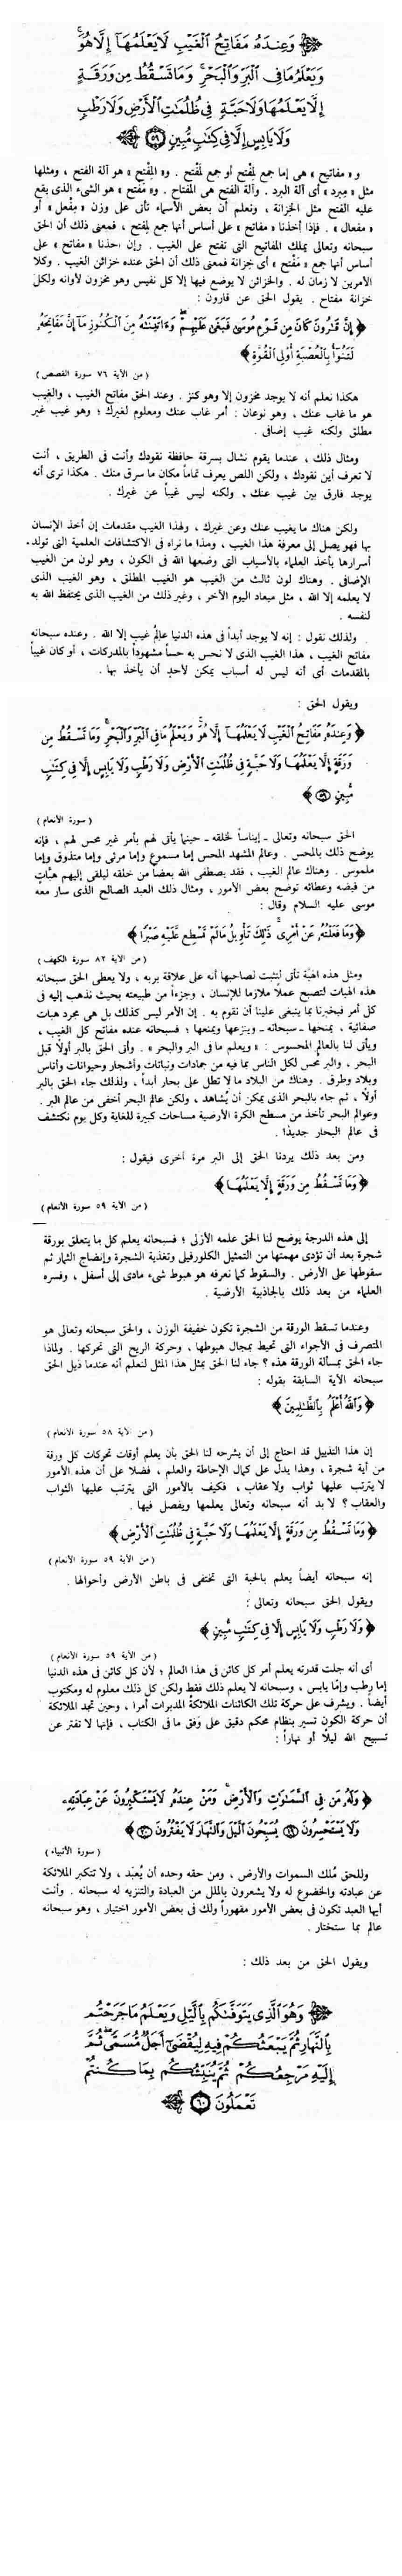 وَعِندَهُۥ مَفَاتِحُ ٱلْغَيْبِ لَا يَعْلَمُهَآ إِلَّا هُوَ ۚ
وَيَعْلَمُ مَا فِى ٱلْبَرِّ وَٱلْبَحْرِ ۚ وَمَا تَسْقُطُ مِن وَرَقَةٍ
إِلَّا يَعْلَمُهَا وَلَا حَبَّةٍ فِى ظُلُمَٰتِ ٱلْأَرْضِ وَلَا رَطْبٍ
وَلَا يَابِسٍ إِلَّا فِى كِتَٰبٍ مُّبِينٍ ﴿٥٩﴾
و « مفاتيح » هى إما جمع لمِفْتح أو جمع لمَفْتح . و« المِفْتح » هو آلة الفتح ، ومثلها
مثل « مِبرد » أى آلة البرد . وآلة الفتح هى المفتاح . و« مَفْتح » هو الشىء الذى يقع
عليه الفتح مثل الخزانة ، ونعلم أن بعض الأسماء تأتى على وزن « مِفْعل » أو
« مفعال » . فإذا أخذنا « مفاتح » على أساس أنها جمع لمِفتح ، فمعنى ذلك أن الحق
سبحانه وتعالى يملك المفاتيح التى تفتح على الغيب . وإن أخذنا « مفاتح » على
أساس أنها جمع « مَفْتح » أى خزانة فمعنى ذلك أن الحق عنده خزائن الغيب . وكلا
الأمرين لا زمان له . والخزائن لا يوضع فيها إلا كل نفيس وهو مخزون لأوانه ولكل
خزانة مفتاح . يقول الحق عن قارون :
﴿ إِنَّ قَٰرُونَ كَانَ مِن قَوْمِ مُوسَىٰ فَبَغَىٰ عَلَيْهِمْ ۖ وَءَاتَيْنَٰهُ مِنَ ٱلْكُنُوزِ مَآ إِنَّ مَفَاتِحَهُۥ
لَتَنُوٓأُ بِٱلْعُصْبَةِ أُو۟لِى ٱلْقُوَّةِ ﴾
( من الآية ٧٦ سورة القصص )
هكذا نعلم أنه لا يوجد مخزون إلا وهو كنز . وعند الحق مفاتح الغيب ، والغيب
هو ما غاب عنك ، وهو نوعان : أمر غاب عنك ومعلوم لغيرك ؛ وهو غيب غير
مطلق ولكنه غيب إضافى .
ومثال ذلك ، عندما يقوم نشال بسرقة حافظة نقودك وأنت فى الطريق ، أنت
لا تعرف أين نقودك ، ولكن اللص يعرف تماماً مكان ما سرق منك . هكذا ترى أنه
يوجد فارق بين غيب عنك ، ولكنه ليس غيباً عن غيرك .
ولكن هناك ما يغيب عنك وعن غيرك ، ولهذا الغيب مقدمات إن أخذ الإنسان
بها فهو يصل إلى معرفة هذا الغيب ، وهذا ما نراه فى الاكتشافات العلمية التى تولد
أسرارها بأخذ العلماء بالأسباب التى وضعها الله فى الكون ، وهو لون من الغيب
الإضافى . وهناك لون ثالث من الغيب هو الغيب المطلق ، وهو الغيب الذى
لا يعلمه إلا الله ، مثل ميعاد اليوم الآخر ، وغير ذلك من الغيب الذى يحتفظ الله به
لنفسه .
ولذلك نقول : إنه لا يوجد أبداً فى هذه الدنيا عالِمُ غيب إلا الله . وعنده سبحانه
مفاتح الغيب ، هذا الغيب الذى لا نحس به حساً مشهوداً بالمدركات ، أو كان غيباً
بالمقدمات أى أنه ليس له أسباب يمكن لأحدٍ أن يأخذ بها .
ويقول الحق :
﴿ وَعِندَهُۥ مَفَاتِحُ ٱلْغَيْبِ لَا يَعْلَمُهَآ إِلَّا هُوَ ۚ وَيَعْلَمُ مَا فِى ٱلْبَرِّ وَٱلْبَحْرِ ۚ وَمَا تَسْقُطُ مِن
وَرَقَةٍ إِلَّا يَعْلَمُهَا وَلَا حَبَّةٍ فِى ظُلُمَٰتِ ٱلْأَرْضِ وَلَا رَطْبٍ وَلَا يَابِسٍ إِلَّا فِى كِتَٰبٍ
مُّبِينٍ ﴿٥٩﴾ ﴾
( سورة الأنعام )
الحق سبحانه وتعالى - إيناساً لخلقه - حينما يأتى لهم بأمر غير محس لهم ، فإنه
يوضح ذلك بالمحس . وعالم المشهد المحس إما مسموع وإما مرئى وإما متذوق وإما
ملموس . وهناك عالم الغيب ، فقد يصطفى الله بعضاً من خلقه ليلقى إليهم هِبَاتٍ
من فيضه وعطائه توضح بعض الأمور ، ومثال ذلك العبد الصالح الذى سار معه
موسى عليه السلام وقال :
﴿ وَمَا فَعَلْتُهُۥ عَنْ أَمْرِى ۚ ذَٰلِكَ تَأْوِيلُ مَا لَمْ تَسْطِع عَّلَيْهِ صَبْرًا ﴾
( من الآية ٨٢ سورة الكهف )
ومثل هذه الهِبَة تأتى لتثبت لصاحبها أنه على علاقة بربه ، ولا يعطى الحق سبحانه
هذه الهبات لتصبح عملاً ملازما للإنسان ، وجزءاً من طبيعته بحيث نذهب إليه فى
كل أمر فيخبرنا بما ينبغى علينا أن نقوم به . إن الأمر ليس كذلك بل هى مجرد هبات
صفائية ، يمنحها - سبحانه - وينزعها ويمنعها ؛ فسبحانه عنده مفاتح كل الغيب ،
ويأتى لنا بالعالم المحسوس : « ويعلم ما فى البر والبحر » . وأتى الحق بالبر أولاً قبل
البحر ، والبر مُحَس لكل الناس بما فيه من جمادات ونباتات وأشجار وحيوانات وأناس
وبلاد وطرق . وهناك من البلاد ما لا تطل على بحار أبداً ، ولذلك جاء الحق بالبر
أولاً ، ثم جاء بالبحر الذى يمكن أن يُشاهد ، ولكن عالم البحر أخفى من عالم البر .
وعوالم البحر تأخذ من مسطح الكرة الأرضية مساحات كبيرة للغاية وكل يوم نكتشف
فى عالم البحار جديداً .
ومن بعد ذلك يردنا الحق إلى البر مرة أخرى فيقول :
﴿ وَمَا تَسْقُطُ مِن وَرَقَةٍ إِلَّا يَعْلَمُهَا ﴾
( من الآية ٥٩ سورة الأنعام )
إلى هذه الدرجة يوضح لنا الحق علمه الأزلى ؛ فسبحانه يعلم كل ما يتعلق بورقة
شجرة بعد أن تؤدى مهمتها من التمثيل الكلورفيلى وتغذية الشجرة وإنضاج الثمار ثم
سقوطها على الأرض . والسقوط كما نعرفه هو هبوط شىء مادى إلى أسفل ، وفسره
العلماء من بعد ذلك بالجاذبية الأرضية .
وعندما تسقط الورقة من الشجرة تكون خفيفة الوزن ، والحق سبحانه وتعالى هو
المتصرف فى الأجواء التى تحيط بمجال هبوطها ، وحركة الريح التى تحركها . ولماذا
جاء الحق بمسألة الورقة هذه ؟ جاء لنا الحق بمثل هذا المثل لنعلم أنه عندما ذيل الحق
سبحانه الآية السابقة بقوله :
﴿ وَٱللَّهُ أَعْلَمُ بِٱلظَّٰلِمِينَ ﴾
( من الآية ٥٨ سورة الأنعام )
إن هذا التذييل قد احتاج إلى أن يشرحه لنا الحق بأن يعلم أوقات تحركات كل ورقة
من أية شجرة ، وهذا يدل على كمال الإحاطة والعلم ، فضلا على أن هذه الأمور
لا يترتب عليها ثواب ولا عقاب ، فكيف بالأمور التى يترتب عليها الثواب
والعقاب ؟ لا بد أنه سبحانه وتعالى يعلمها ويفصل فيها .
﴿ وَمَا تَسْقُطُ مِن وَرَقَةٍ إِلَّا يَعْلَمُهَا وَلَا حَبَّةٍ فِى ظُلُمَٰتِ ٱلْأَرْضِ ﴾
( من الآية ٥٩ سورة الأنعام )
إنه سبحانه أيضاً يعلم بالحبة التى تختفى فى باطن الأرض وأحوالها .
ويقول الحق سبحانه وتعالى :
﴿ وَلَا رَطْبٍ وَلَا يَابِسٍ إِلَّا فِى كِتَٰبٍ مُّبِينٍ ﴾
( من الآية ٥٩ سورة الأنعام )
أى أنه جلت قدرته يعلم أمر كل كائن فى هذا العالم ؛ لأن كل كائن فى هذه الدنيا
إما رطب وإما يابس ، وسبحانه لا يعلم ذلك فقط ولكن كل ذلك معلوم له ومكتوب
أيضاً . ويشرف على حركة تلك الكائنات الملائكةُ المدبرات أمرا ، وحين تجد الملائكة
أن حركة الكون تسير بنظام محكم دقيق على وَفق ما فى الكتاب ، فإنها لا تفتر عن
تسبيح الله ليلاً أو نهاراً :
﴿ وَلَهُۥ مَن فِى ٱلسَّمَٰوَٰتِ وَٱلْأَرْضِ ۚ وَمَنْ عِندَهُۥ لَا يَسْتَكْبِرُونَ عَنْ عِبَادَتِهِۦ
وَلَا يَسْتَحْسِرُونَ ﴿١٩﴾ يُسَبِّحُونَ ٱلَّيْلَ وَٱلنَّهَارَ لَا يَفْتُرُونَ ﴿٢٠﴾ ﴾
( سورة الأنبياء )
وللحق مُلك السموات والأرض ، ومن حقه وحده أن يُعبَد ، ولا تتكبر الملائكة
عن عبادته والخضوع له ولا يشعرون بالملل من العبادة والتنزيه له سبحانه . وأنت
أيها العبد تكون فى بعض الأمور مقهوراً ولك فى بعض الأمور اختيار ، وهو سبحانه
عالم بما ستختار .
ويقول الحق من بعد ذلك :
وَهُوَ ٱلَّذِى يَتَوَفَّىٰكُم بِٱلَّيْلِ وَيَعْلَمُ مَا جَرَحْتُم
بِٱلنَّهَارِ ثُمَّ يَبْعَثُكُمْ فِيهِ لِيُقْضَىٰٓ أَجَلٌ مُّسَمًّى ۖ ثُمَّ
إِلَيْهِ مَرْجِعُكُمْ ثُمَّ يُنَبِّئُكُم بِمَا كُنتُمْ
تَعْمَلُونَ ﴿٦٠﴾